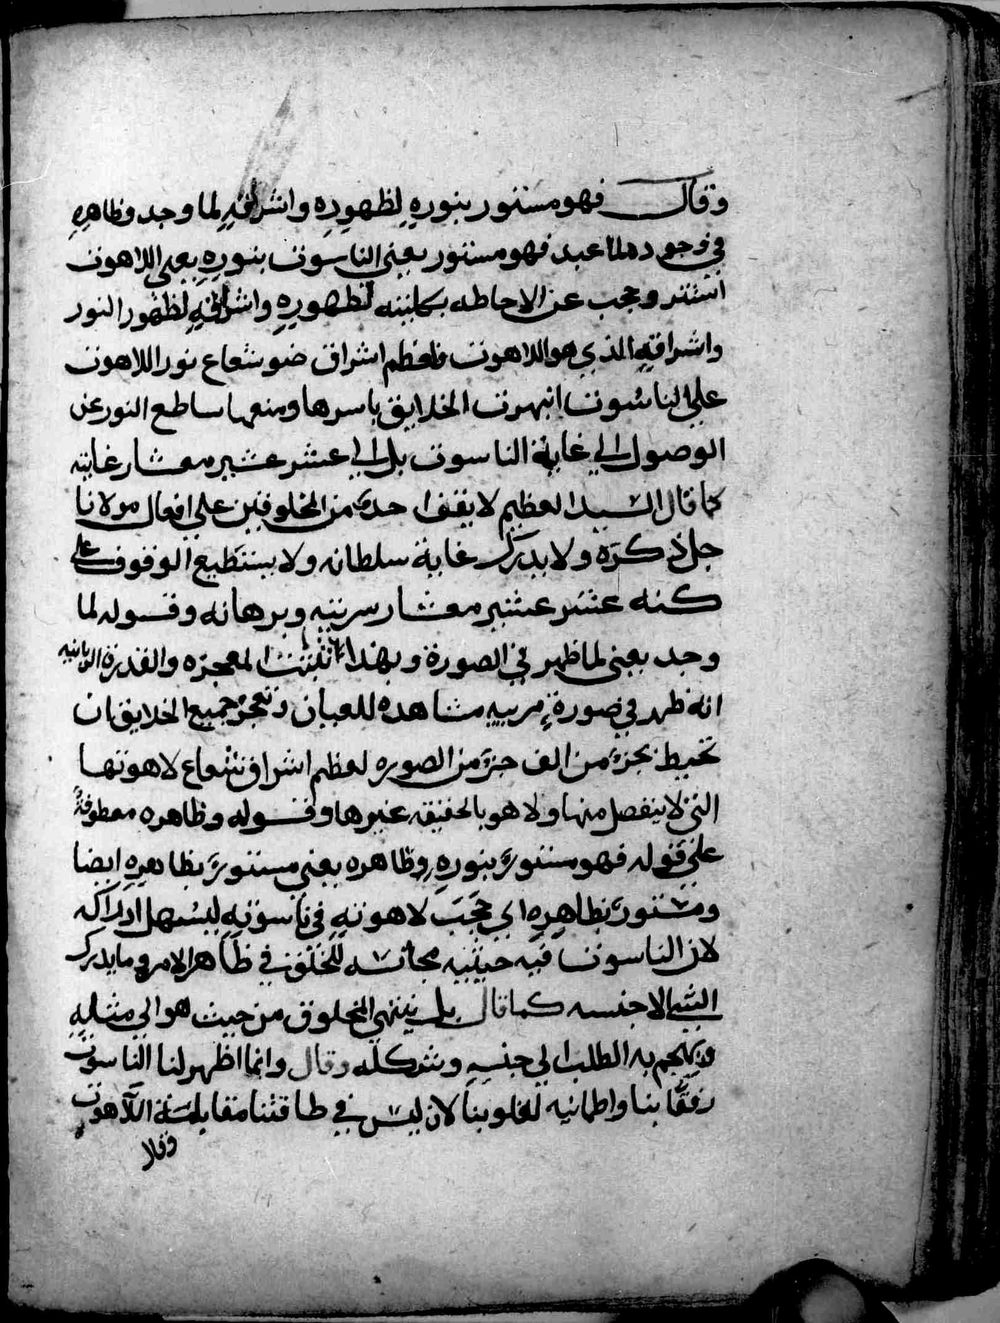 وقال فهو مستور بنوره لظهوره واشراقه لما وجد وظاهره
في وجوده لما عبد فهو مستور يعني الناسوت بنوره يعني اللاهوت
استتر وحجب عن الاحاطه بكليته لظهوره واشراقه لظهور النور
واشراقه الذي هو اللاهوت ولعظم اشراق ضو شعاع نور اللاهوت
علي الناسوت انبهرت الخلايق باسرها ومنعها ساطع النور عن
الوصول الي غاية الناسوت بل الي عشر عشير معشار غايته
كما قال السيد العظيم لا يقف احد من المخلوقين علي افعال مولانا
جل ذكره ولا يدرك غاية سلطانه ولا يستطيع الوقوف على
كنه عشر عشير معشار سريته وبرهانه وقوله لما
وجد يعني لما ظهر في الصورة وبهذا تثبت المعجزه والقدرة الربانيه
انه ظهر في صورة مرييه مشاهده للعيان وتعجز جميع الخلايق ان
تحيط بجزء من الف جزء من الصوره لعظم اشراق شعاع لاهوتها
التي لا ينفصل منها ولا هو بالحقيقه غيرها وقوله وظاهره معطوفة
علي قوله فهو مستور بنوره وظاهره يعني مستور بظاهره ايضا
ومستور بظاهره اي حجب لاهوته في ناسوته ليسهل ادراكه
لان الناسوت فيه حيثيه مجانسه للخلق في ظاهر الامر وما يدرك
الشي الا جنسه كما قال بل ينتهي المخلوق من حيث هو الي مثله
ويهجم به الطلب الي جنسه وشكله وقال وانما اظهر لنا الناسوت
رفقا بنا واطمانيه لقلوبنا لان ليس في طاقتنا مقابلة اللاهوت
وقلا